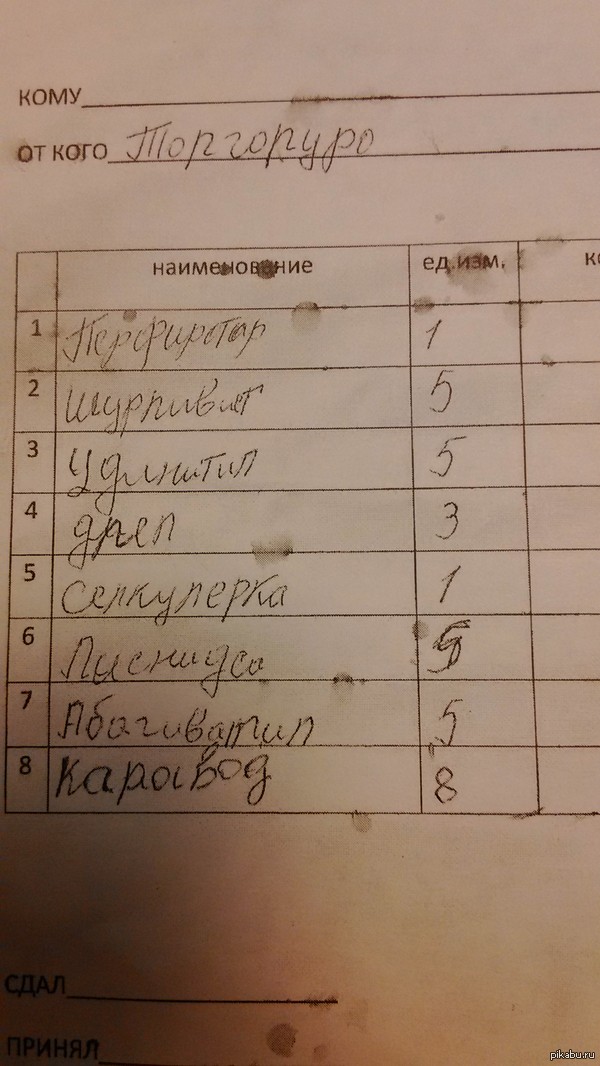 КОМУ
ОТ КОГО Торгопуро
наименование ед.изм. ко
1 Перфиротар 1
2 Шурпивит 5
3 Удлнитил 5
4 дреп 3
5 Селкуперка 1
6 5
7 Абогиватил 5
8 Каравод 8
СДАЛ
ПРИНЯЛ
pikabu.ru